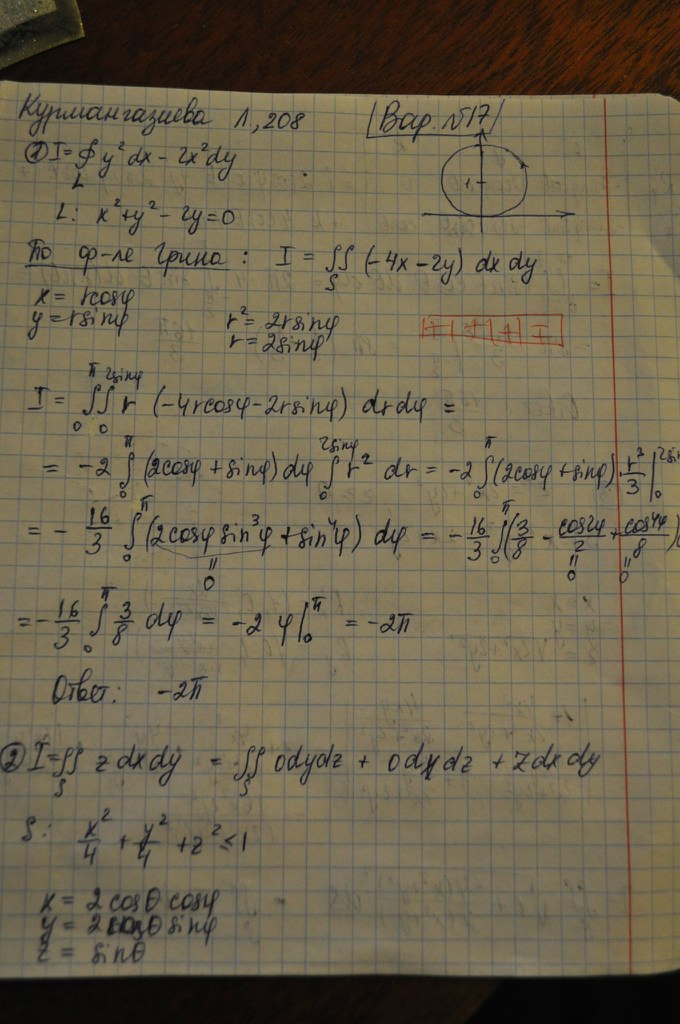 Курмангазиева Л, 208
Вар. №17
① I = ∮_L y² dx − 2x² dy
1
L: x² + y² − 2y = 0
По ф-ле Грина: I = ∬_S (−4x − 2y) dx dy
x = r cos φ
y = r sin φ
r² = 2r sin φ
r = 2 sin φ
+ | + | + | +
I = ∫₀^π ∫₀^{2sin φ} r (−4r cos φ − 2r sin φ) dr dφ =
= −2 ∫₀^π (2cos φ + sin φ) dφ ∫₀^{2sin φ} r² dr = −2 ∫₀^π (2cos φ + sin φ) · r³/3 |₀^{2sin
= − 16/3 ∫₀^π (2cos φ sin³ φ + sin⁴ φ) dφ = − 16/3 ∫₀^π (3/8 − cos2φ/2 + cos4φ/8)
= 0 = 0 = 0
= − 16/3 ∫₀^π 3/8 dφ = −2 φ |₀^π = −2π
Ответ: −2π
② I = ∬_S z dx dy = ∬_S 0 dy dz + 0 dx dz + z dx dy
S: x²/4 + y²/4 + z² ≤ 1
x = 2 cos θ cos φ
y = 2 cos θ sin φ
z = sin θ